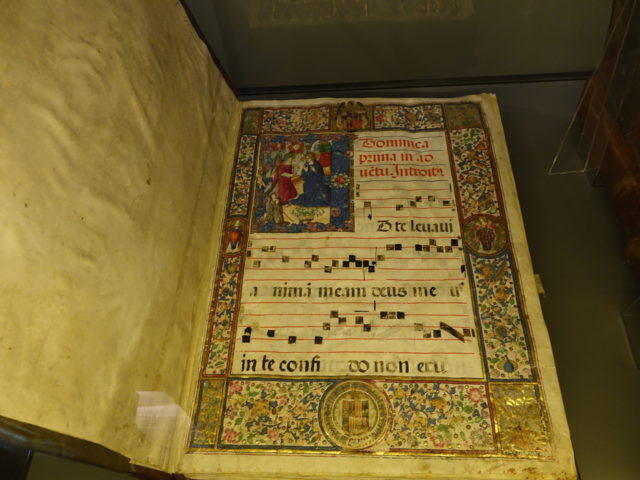 Dominica
prima in ad
uētu. Introitꝰ
D te leuaui
a nimā meam deus me
in te confi do non eru